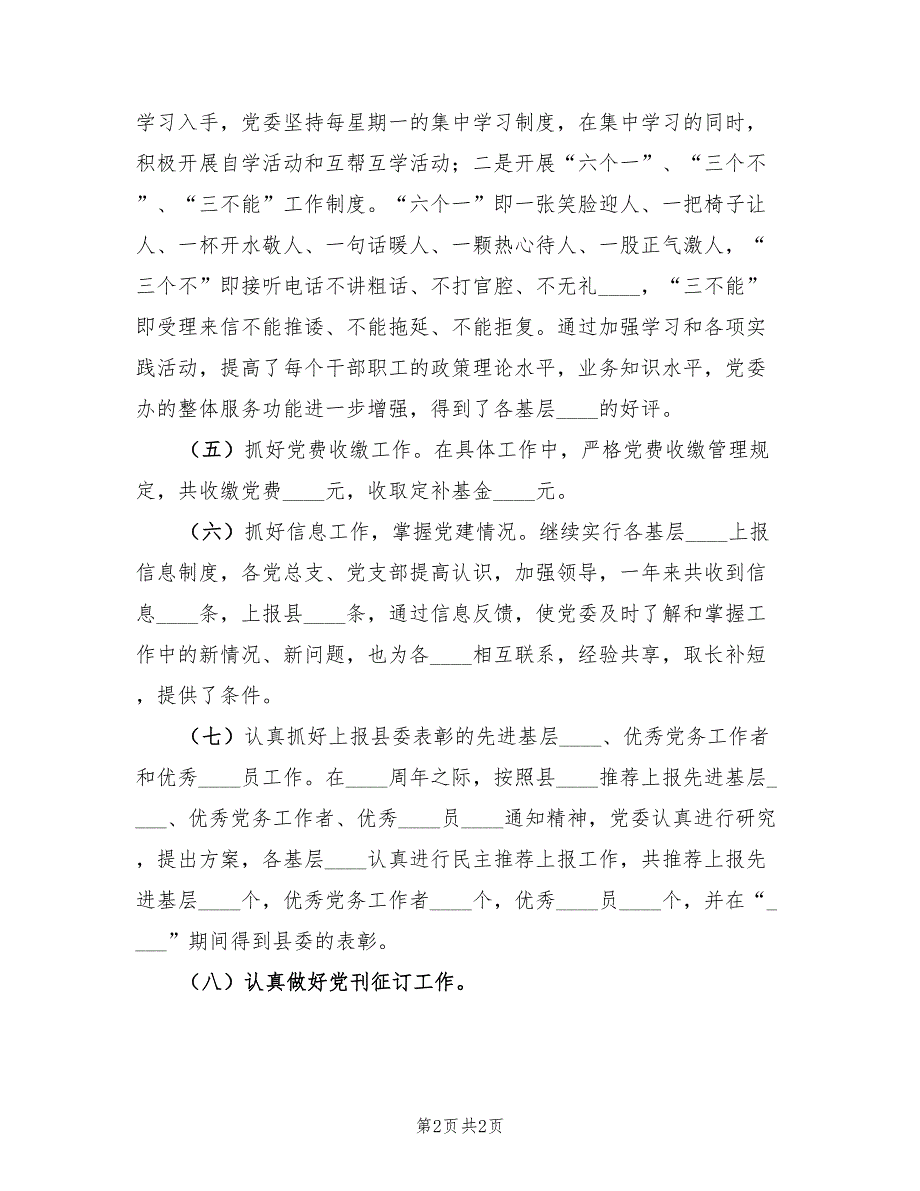 学习入手，党委坚持每星期一的集中学习制度，在集中学习的同时，
积极开展自学活动和互帮互学活动；二是开展“六个一”、“三个不
”、“三不能”工作制度。“六个一”即一张笑脸迎人、一把椅子让
人、一杯开水敬人、一句话暖人、一颗热心待人、一股正气激人，“
三个不”即接听电话不讲粗话、不打官腔、不无礼____，“三不能”
即受理来信不能推诿、不能拖延、不能拒复。通过加强学习和各项实
践活动，提高了每个干部职工的政策理论水平，业务知识水平，党委
办的整体服务功能进一步增强，得到了各基层____的好评。
（五）抓好党费收缴工作。在具体工作中，严格党费收缴管理规
定，共收缴党费____元，收取定补基金____元。
（六）抓好信息工作，掌握党建情况。继续实行各基层____上报
信息制度，各党总支、党支部提高认识，加强领导，一年来共收到信
息____条，上报县____条，通过信息反馈，使党委及时了解和掌握工
作中的新情况、新问题，也为各____相互联系，经验共享，取长补短
，提供了条件。
（七）认真抓好上报县委表彰的先进基层____、优秀党务工作者
和优秀____员工作。在____周年之际，按照县____推荐上报先进基层_
___、优秀党务工作者、优秀____员____通知精神，党委认真进行研究
，提出方案，各基层____认真进行民主推荐上报工作，共推荐上报先
进基层____个，优秀党务工作者____个，优秀____员____个，并在“_
___”期间得到县委的表彰。
（八）认真做好党刊征订工作。
第2页 共2页